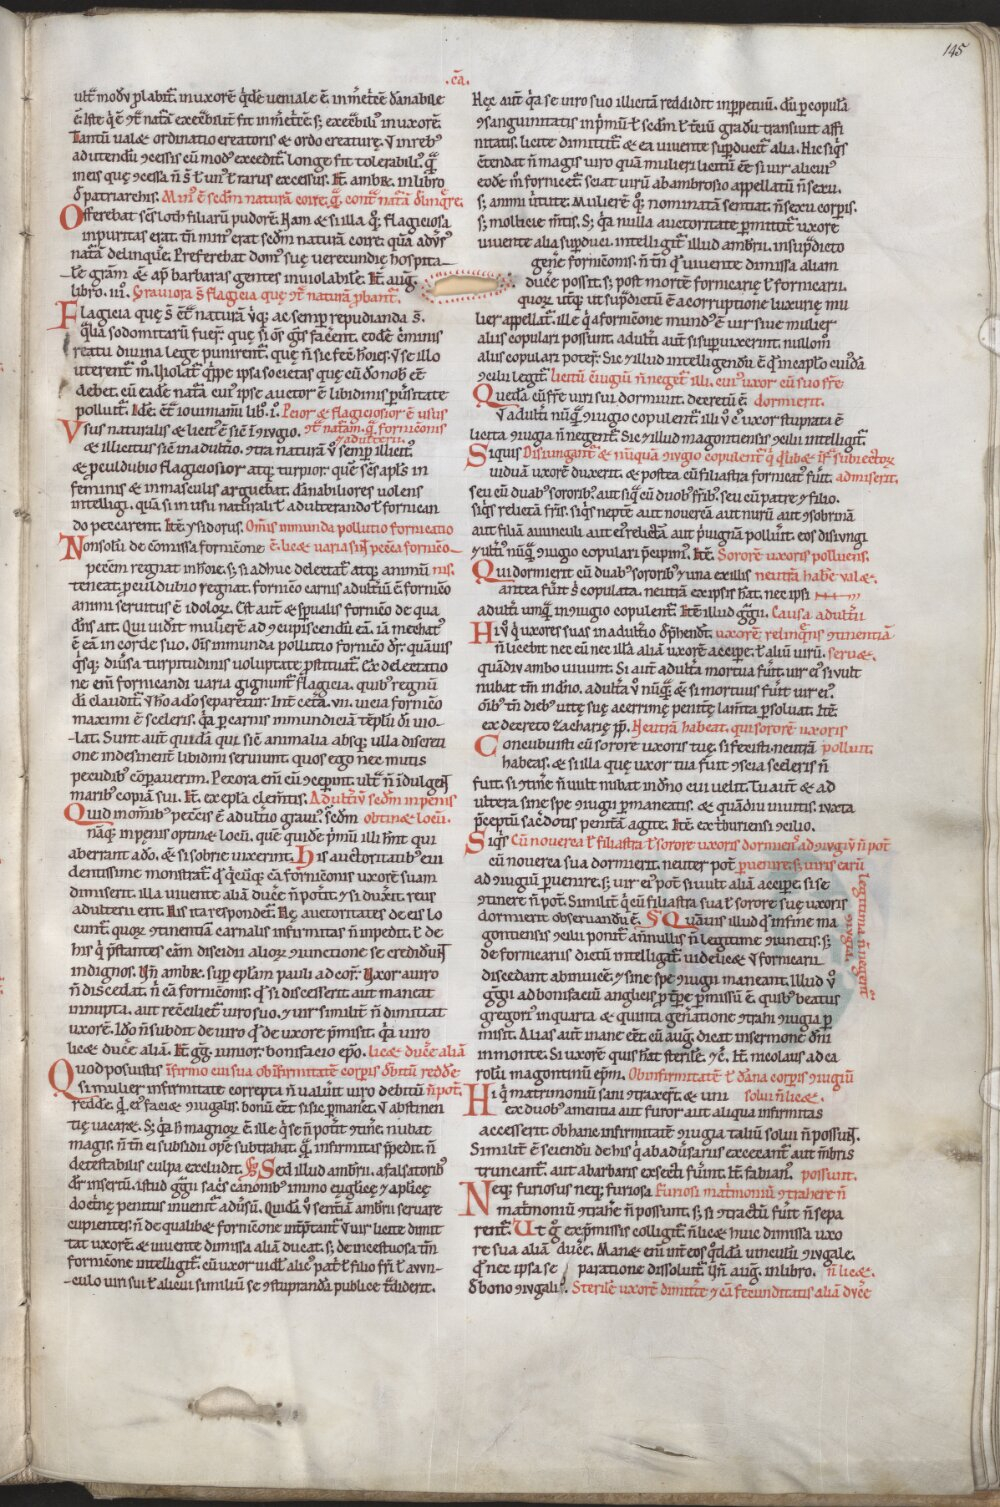 145
.cā.
ult̄ modū plabit̄. in uxorē q̇dē ueniale ē. in m̄et̄ce dānabile
Tantū ualet ordinatio creatoris & ordo creaturę. ut in reb;
meis quę ɔcessa n̄ s̄ ł un; ł rarus excessus. It̄ ambr̄. in libro
d̄ patriarchis. Min; ē sedm̄ naturā coire. q̄ cont̄ natā d̄linq̄re.
Offerebat sc̄s loth filiarū pudorē. Nam & si illa q; flagiciosa
inpuritas erat. tn̄ min; erat sedm̄ naturā coire. quā adūs;
natā delinque. Preferebat dom; suę uerecundię hospita
le grām & ap̄ barbaras gentes inuiolabile. It̄ auḡ.
libro .iii. Grauiora s̄ flagicia quę ɔt̄ naturā p̄bant̄.
Flagicia quę s̄ ɔt̄ naturā ubiq; ac semp̄ repudianda s̄.
qualia sodomitarū fuer̄. quę si om̄s gn̄s facent̄. eodē c̄minis
reatu diuina lege punirent̄. quę n̄ sic fec̄ hōies. ut se illo
uterent̄ m̄. Violat̄ q̄ppe ipsa societas quę cū dō nob̄ eē
debet. cū eadē natā cui; ipse auctor ē libidinis p̄uersitate
polluit̄. Idē. ɔt̄ iouinianū lib̄. i. Peior & flagiciosior ē usus
Usus naturalis & licit; ē sic̄ in ɔiugio. ɔt̄ nat̄am. q̄ fornicōnis
& adulterii.
& illicitus sic̄ in adultio. ɔtra naturā u̇ semp̄ illicit;
& p̄culdubio flagiciosior atq; turpior. quē sc̄s apl̄s in
feminis & in masculis arguebat. dānabiliores uolens
intelligi. quā si in usu naturali ł adulterando ł fornican
do peccarent. Itē ysidorus. Om̄is inmunda pollutio fornicatio
Non solū de cōmissa fornicōne ē. licet uaria sint pecc̄a fornicō
pecc̄m regnat in hōie. s; si adhuc delectat̄ atq; animū nis.
teneat. p̄culdubio regnat. fornicō carnis adultiū ē. fornicō
animi seruitus ē idolor̄. Est aut̄ & sp̄ualis fornicō de qua
dn̄s ait. Qui uidit mulierē ad ɔcupiscendū eā. iā mechat;
ē eā in corde suo. Om̄s inmunda pollutio fornicō dr̄. quāuis
q̇sq; diūsa turpitudinis uoluptate p̄stituat̄. Ex delectatio
ne em̄ fornicandi uaria gignunt̄ flagicia. quib; regnū
di claudit̄. & hō a dō separet̄ur. Int̄ cet̄a .vii. uicia fornicō
maximi ē sceleris. q̄a p̄ carnis inmundiciā tēplū di uio
lat. Sunt aut̄ quidā qui sic̄ animalia absq; ulla discreti
one indesinent̄ libidini seruiunt. quos ego nec mutis
pecudib; cōpauerim. Pecora em̄ cū ɔceperint. ult̄ n̄ īdulgent
marib; copiā sui. It̄. ex epl̄a clem̄tis. Adultiū sedm̄ in penis
Quid in omib; pecc̄is ē adultio graui;. sedm̄ obtinet locū.
nāq; in penis optinet locū. quē quidē p̄mū illi hn̄t qui
aberrant a dō. & si sobrie uixerint. His auctoritatib; eui
dentissime monstrat̄ q̄d q̇cūq; cā fornicōnis uxorē suam
dimiserit. illa uiuente aliā ducē n̄ pot̄it. & si duxit̄ reus
adulterii erit. His ita respondet̄. Hę auctoritates de eis lo
cunt̄. quor̄ ɔtinentiā carnalis infirmitas n̄ inpedit. ł de
his q̇ p̄stantes cām discidii alior̄ ɔiunctione se crediderunt
indignos. Un̄ ambr̄. sup̄ epl̄am pauli ad cor̄. Uxor a uiro
n̄ discedat. n̄ cā fornicōnis. q̄d si discesserit. aut maneat
innupta. aut recōciliet̄ uiro suo. & uir similit̄ n̄ dimittat
uxorē. Idō n̄ subdit de uiro q̄d de uxore p̄misit. q̄a uiro
licet ducē aliam. It̄ gg̅. iunior. bonifacio ep̄o. licet ducē aliā
Quod posuisti īfirmo cui sua ob īfirmitatē corpis dbitū reddē
si mulier infirmitate correpta n̄ ualuit̄ uiro debitū n̄ pot̄.
reddē. q̇d ei; faciet ɔiugalis. bonū eēt si sic p̄manet̄. ut abstinen
tię uacaret. S; q̄a h̄ magnor̄ ē. ille q̇ se n̄ pot̄it ɔtine. nubat
magis. n̄ tn̄ ei subsidii opē subtrahat. q̄ infirmitas p̄pedit. n̄
detestabilis culpa excludit. § Sed illud ambr̄ii. a falsatorib;
dr̄ insertū. istud gg̅ii sacs canonib; immo euglicę & aplicę
doct̄nę penitus inuenit̄ adūsū. Quidā u̇ sentntiā ambr̄ii seruare
cupientes. n̄ de qualibet fornicōne int̄ptant̄. ut uir licite dimit
tat uxorē. & uiuente dimissa aliā ducat. s; de incestuosa tm̄
fornicōne intelligit̄. cū uxor uidl̄. alic; pat̄ ł filio fr̄i ł auun
culo uiri sui ł alicui similiū se ɔstupranda publice t̄diderit.
Hęc aut̄ q̄a se uiro suo illicitā reddidit inp̄petuū. dū p̄ copulā
ɔsanguinitatis in p̄mū ł sedm̄ ł t̄ciū gradū transiuit affi
nitatis. licite dimittit̄. & ea uiuente sup̄ducit̄ alia. Hic siq̄s
ɔtendat n̄ magis uiro quā mulieri licitū eē. si uir alicui;
eodē m̄ fornicet̄. sciat uirū ab ambrosio appellatū n̄ sexu.
s; animi uirtute. Mulierē q; nominatā sentiat. n̄ sexu corpis.
s; mollicie mtis. S; q̄a nulla auctoritate p̄mittit̄ ut uxore
uiuente alia sup̄duci. intelligit̄ illud ambr̄ii. in sup̄dicto
genē fornicōnis. n̄ tn̄ q̄d uiuente dimissa aliam
ducē possit. s; post mortē fornicarię ł fornicarii.
quor̄ ut̄q; ut sup̄dictū ē a corruptione luxurię mu
lier appellat̄. ille q̇ a fornicōne mund; ē uir siue mulier
aliis copulari possunt. adult̄i aut̄ si sup̄uixerint. nullom̄
aliis copulari poter̄. Sic & illud intelligendū ē q̄d in caplo cuidā
ɔcilii legit̄. licitū ɔiugiū n̄ neget̄ illi. cui; uxor cū suo fr̄e
Quedā cū fr̄e uiri sui dormiuit. decretū ē. dormierit.
ut adult̄i nūq̄ ɔiugio copulent̄. illi u̇ c; uxor stuprata ē
licita ɔiugia n̄ negent̄. Sic & illud magontiensis ɔcilii intelligit̄.
Siquis Disiungant̄ & nūquā ɔiugio copulent̄ q̇ q̇libet īfr̄ subiector̄
uiduā uxorē duxerit. & postea cū filiastra fornicat̄ fuit̄. admiserit.
seu cū duab; sororib; aut siq̄ cū duob; fr̄ib;. seu cū patre & filio.
siq̄s relictā fr̄is. siq̄s neptē aut nouercā aut nurū aut ɔsobrinā
aut filiā auunculi aut ei; relictā. aut p̄uignā polluit̄. eos disiungi
& ult̄i; nūq̄ ɔiugio copulari p̄cipim;. Itē. Sororē uxoris polluens.
Qui dormierit cū duab; sororib; & una ex illis neutrā habē ualet.
antea fuit̄ s̄ copulata. neutrā ex ipsis hāt. nec ipsi
adult̄i umq̄ in ɔiugio copulent̄. Itē illud gg̅ii. Causa adultii
Hii u̇ q̇ uxores suas in adultio dp̄hendt̄. uxorē relinq̄ns ɔtinentiā
n̄ licebit nec eū nec illā aliā uxorē accipe. ł aliū uirū. seruet.
quādiu ambo uiuunt. Si aut̄ adult̄a mortua fuit̄. uir ei; si uult
nubat tm̄ in dn̄o. adult̄a u̇ nūq̄. & si mortuus fuit̄ uir ei;.
om̄ib; tn̄ dieb; uitę suę acerrimę penitn̄ę lam̄ta p̄soluat. Itē.
ex decreto zacharię pp̄. Neutrā habeat. qui sororē uxoris
Concubuisti cū sorore uxoris tuę. si fecisti. neutrā polluit̄.
habeas. & si illa quę uxor tua fuit ɔscia sceleris n̄
fuit. si ɔtinē n̄ uult nubat in dn̄o cui uelit. Tu aut̄ & ad
ultera sine spe ɔiugii p̄maneatis. & quādiu uiuitis. iuxta
p̄ceptū sacdotis penitn̄ā agite. Itē ex t̄buriensi ɔcilio.
Siq̄s Cū nouerca ł filiastra ł sorore uxoris dormiens ad ɔiugiū n̄ pot̄
cū nouerca sua dormierit. neuter pot̄ p̄uenire. s; uiris earū
legitima n̄ negent̄ ɔiugia.
ad ɔiugiū p̄uenire. s; uir ei; pot̄ si uult aliā accipe. si se
ɔtinere n̄ pot̄. Similit̄ q̇ cū filiastra sua ł sorore suę uxoris
dormierit obseruandū ē. § Quāuis illud q̄d in fine ma
gontiensis ɔcilii ponit̄. a nūllis n̄ legitime ɔiunctis. s;
de fornicariis dictū intelligat̄. uidelicet ut fornicarii
discedant abinuicē. & sine spe ɔiugii maneant. Illud u̇
gg̅ii ad bonifaciū anglicis p̄ tp̄re p̄missū ē. quib; beatus
gregori; in quarta & quinta gen̄atione ɔtrahi ɔiugia p̄
misit. Alias aut̄ inane eēt. cū auḡ. dicat in sermone dn̄i
in monte. Si uxorē quis hāt sterilē. &c̄. It̄. nicolaus ad ca
rolū magontinū ep̄m. Ob infirmitatē ł dāna corpis ɔiugiū
Hi q̇ matrimoniū sani ɔtraxert̄. & uni solui n̄ licet.
ex duob; amentia aut furor aut aliqua infirmitas
accesserit. ob hanc infirmitatē ɔiugia taliū solui n̄ possunt.
Similit̄ ē sciendū de his q̇ ab adūsariis excecant̄. aut mbris
truncant̄. aut a barbaris exsecti fuint̄. It̄. fabian;. possunt.
Neq; furiosus neq; furiosa Furiosi matimoniū ɔtrahere n̄
matimoniū ɔtrahē n̄ possunt. s; si ɔtractū fuit̄ n̄ sepa
rent̄. Ut g̊ ex p̄missis colligit̄. n̄ licet huic dimissa uxo
re sua aliā ducē. Manet em̄ int̄ eos q̇ddā uinculū ɔiugale.
q̄d nec ipsa separatione dissoluit̄. Un̄ auḡ. in libro. n̄ licet.
d̄ bono ɔiugali. Sterilē uxorē dimitte & cā fecunditatis aliā ducē